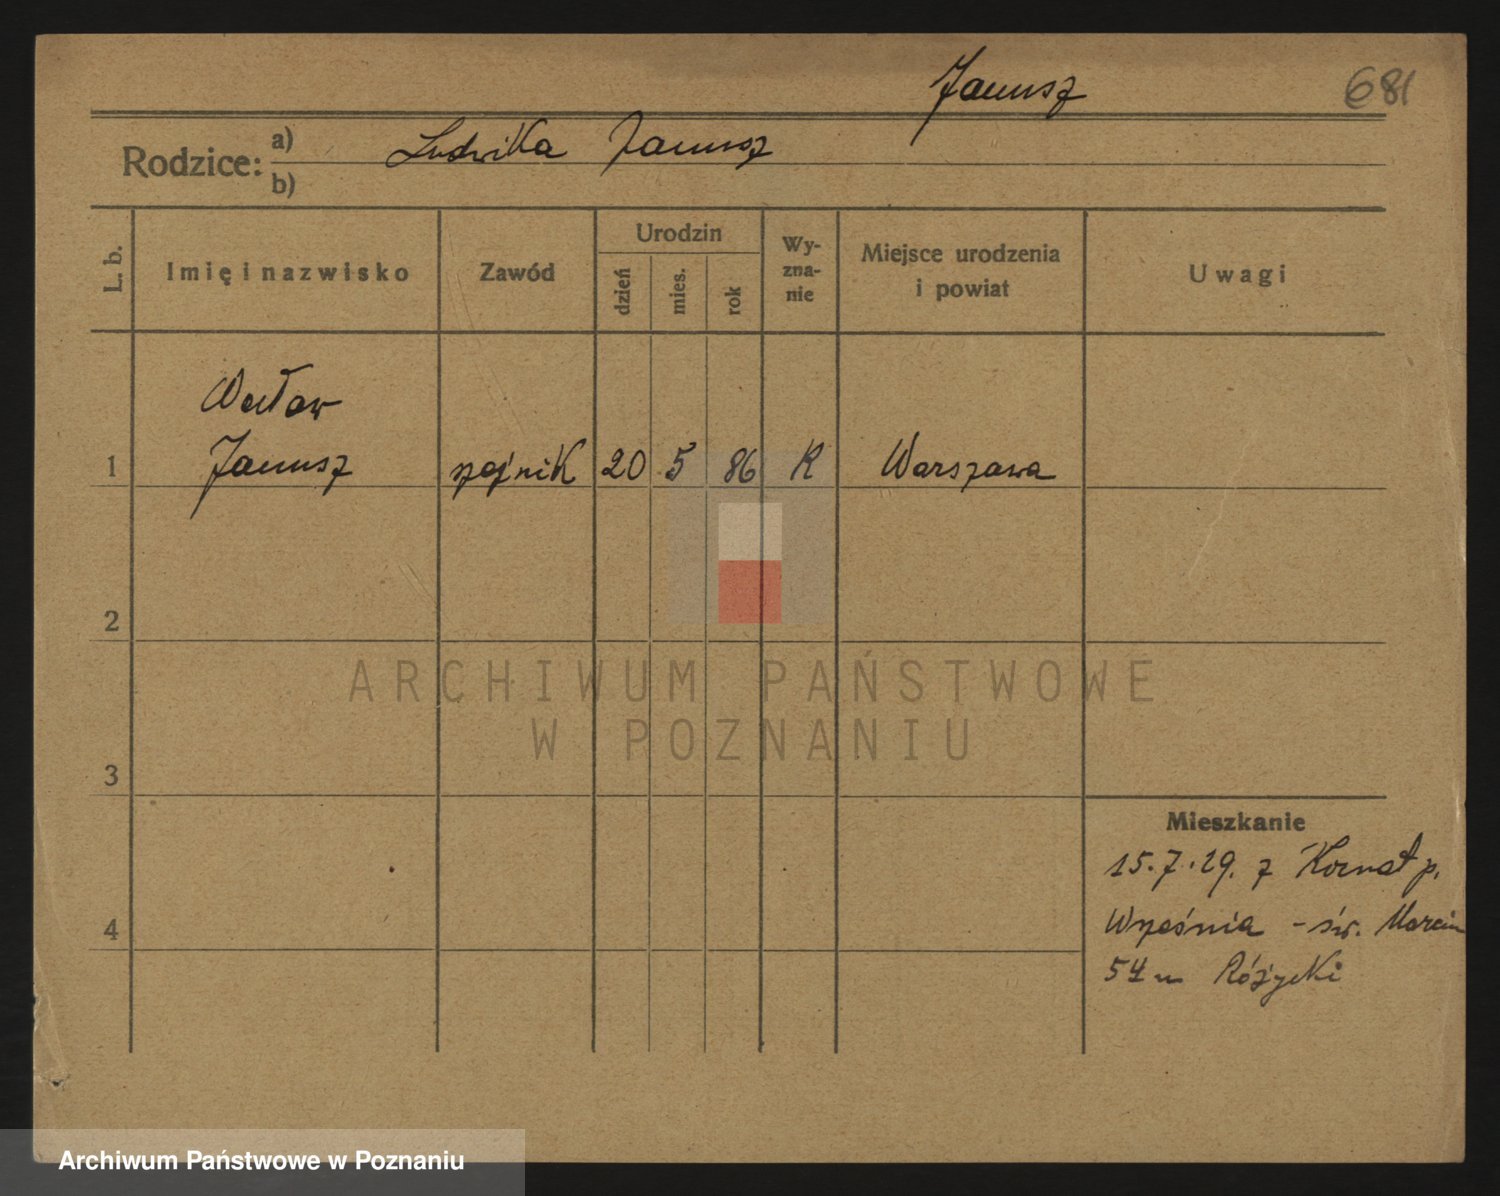 Janusz
681
Rodzice:
a) Ludwika Janusz
b)
L. b.
Imię i nazwisko
Zawód
Urodzin
dzień
mies.
rok
Wy-
zna-
nie
Miejsce urodzenia
i powiat
Uwagi
Wacław
1 Janusz 20 5 86 R Warszawa
2
3
4
Mieszkanie
15.7.29. z p.
Września - św. Marcin
54 u Różycki
ARCHIWUM PAŃSTWOWE
W POZNANIU
Archiwum Państwowe w Poznaniu